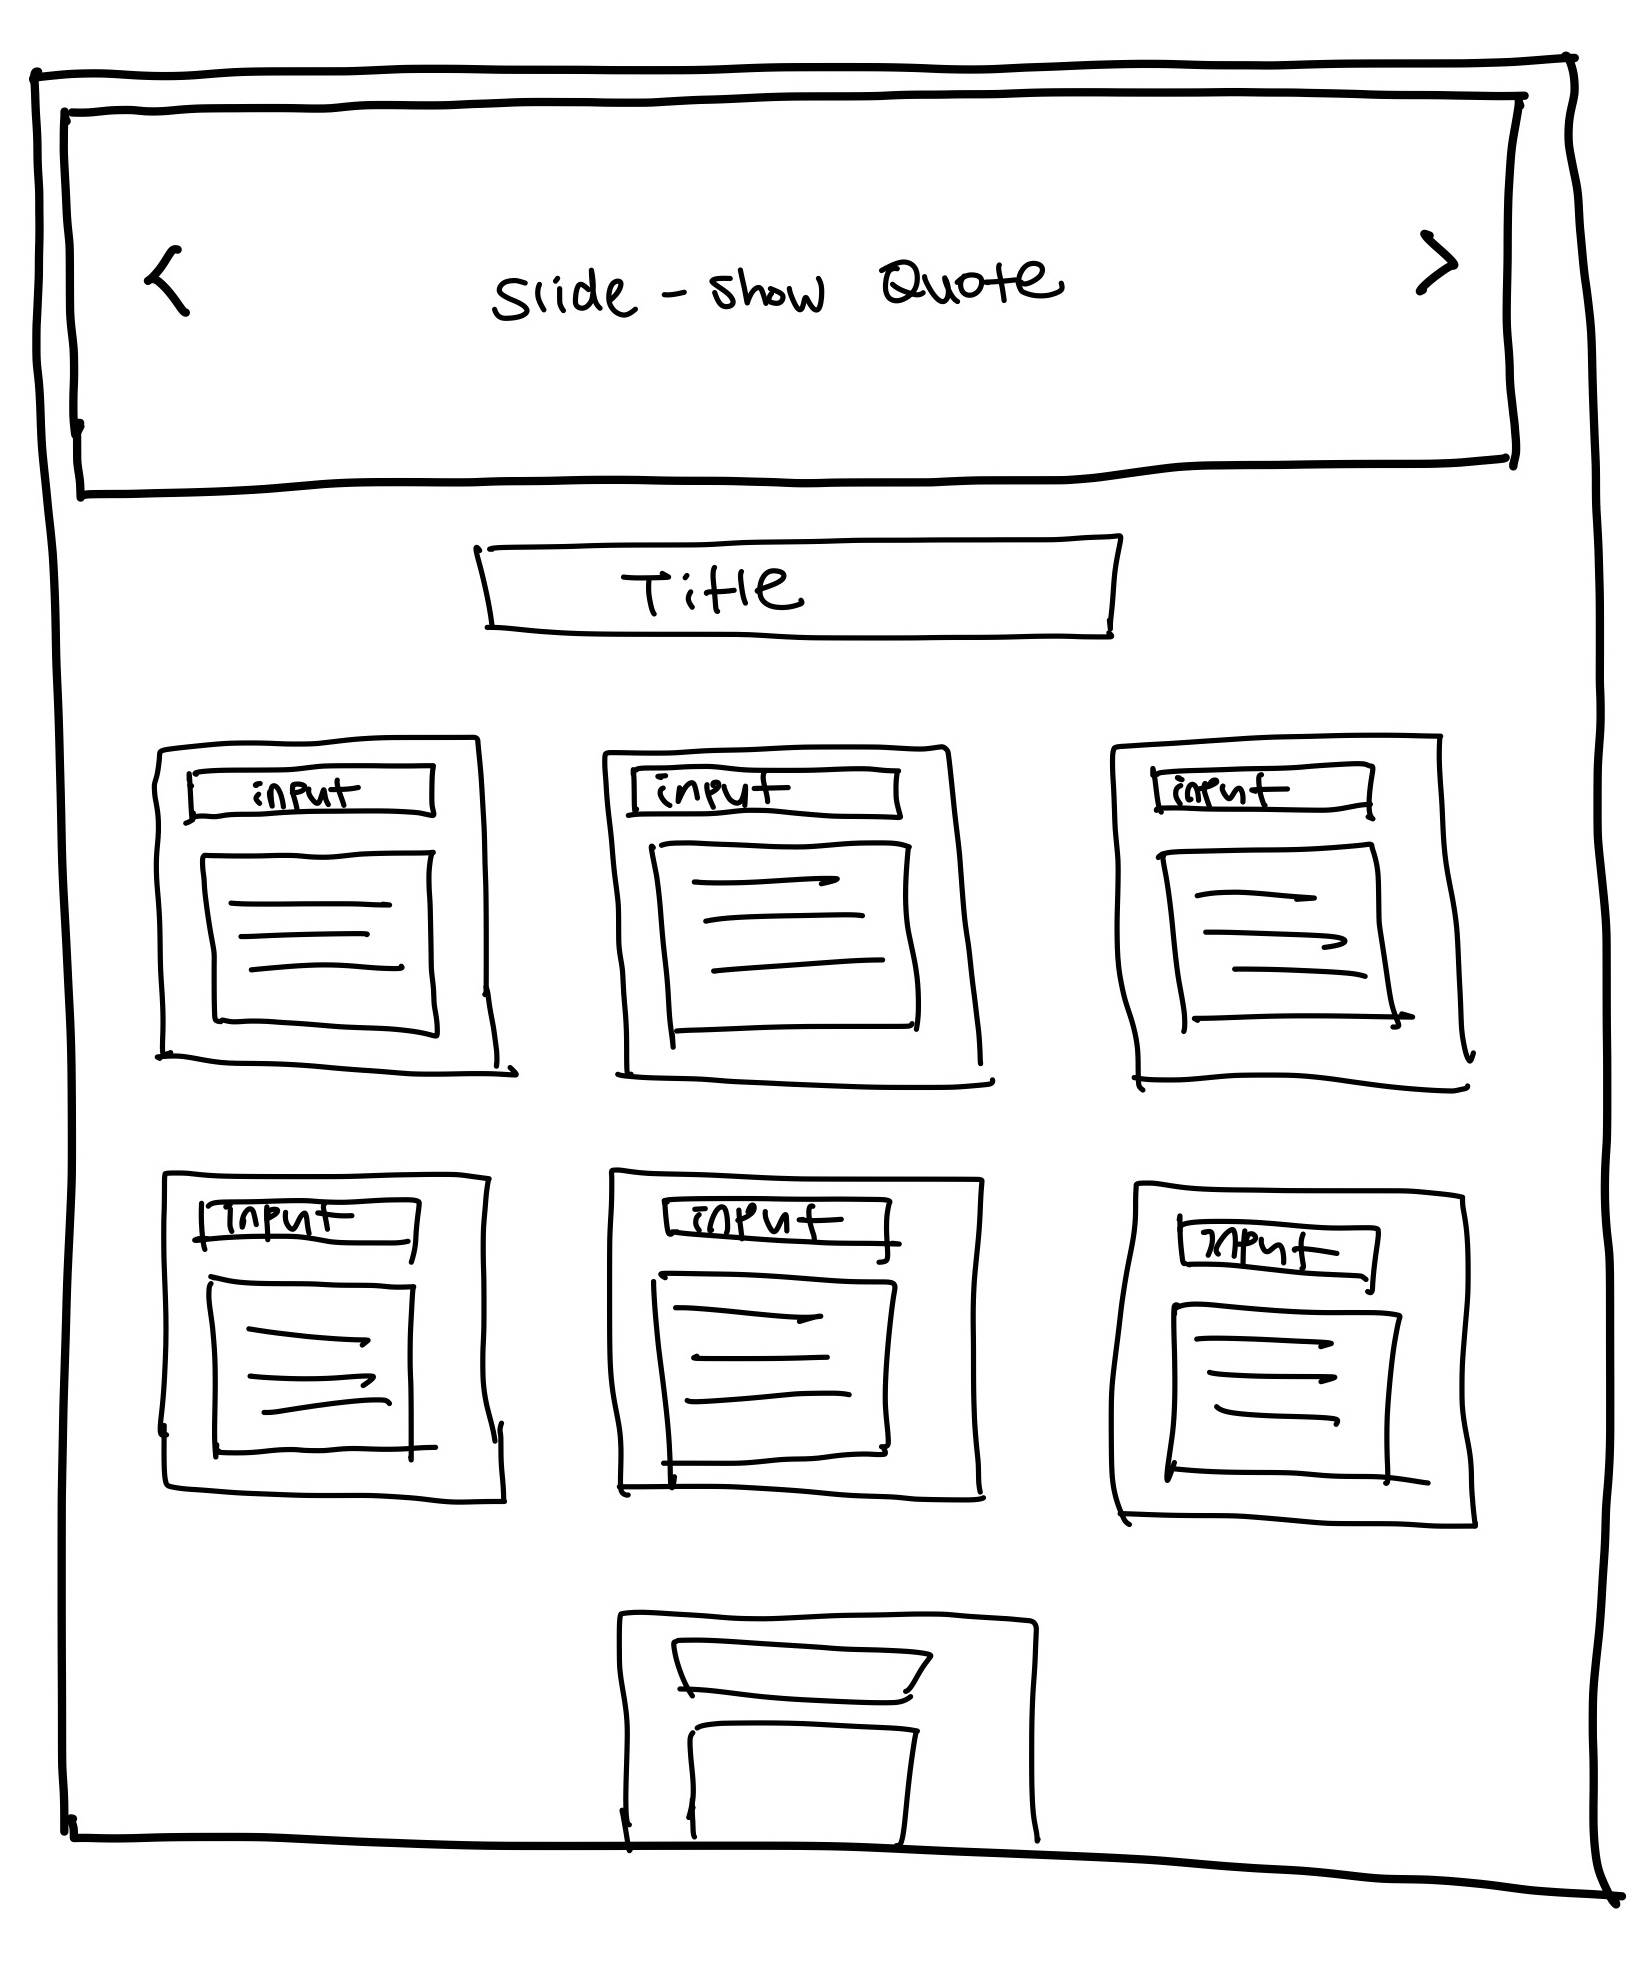 Slide - show Quote
Title
input
input
input
input
input
input